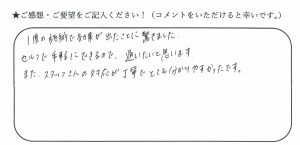 ★ご感想・ご要望をご記入ください！（コメントをいただけると幸いです。）
1度の施術で効果が出たことに驚きました。
セルフで手軽にできるので、通いたいと思います
また、スタッフさんの対応が丁寧でとても分かりやすかったです。